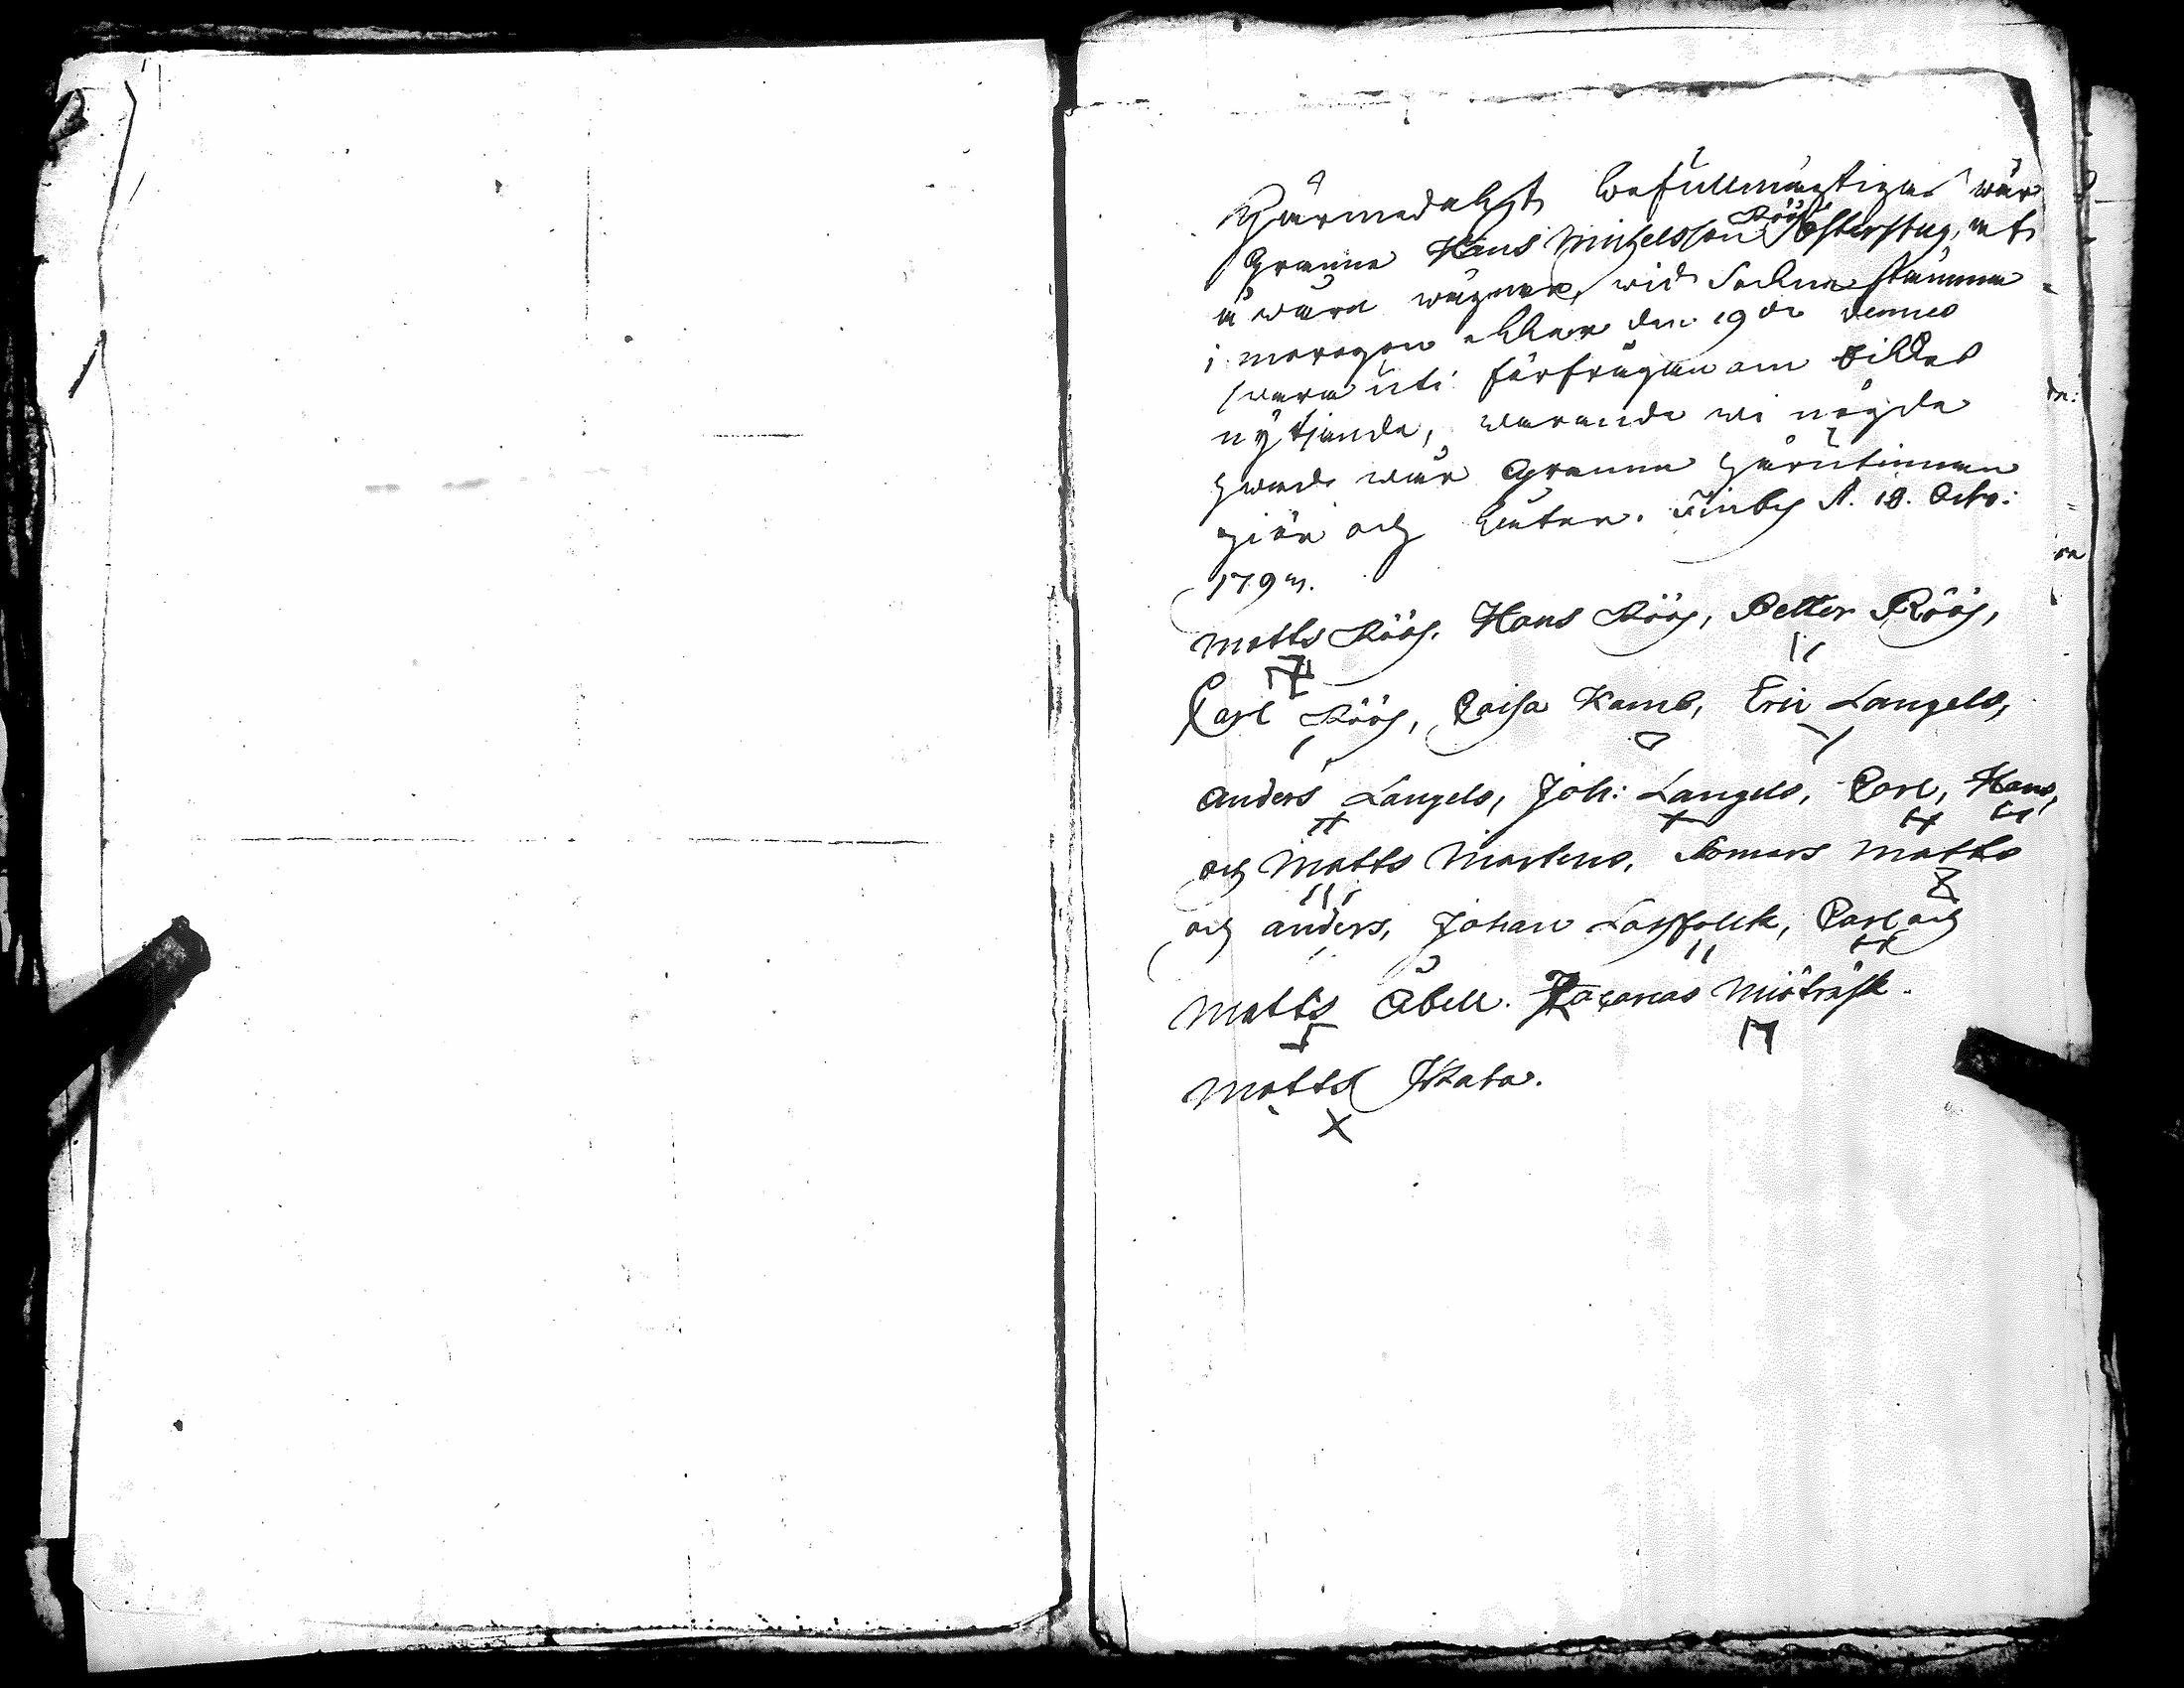 Härmedelst befullmägtigas wår
Granne Hans Michelsson Röös Österstug, at
å wåra wägnar, wid Sockne stämma
i morgon eller den 19de dennes
swara uti förfrågan om
nytjande, warande wi nögde
hwad wår Granne härutinnan
giör och låter. Finby d. 18. Octo:
179
Matts Röös, Hans Röös, Petter Röös,
Carl Röös, Caisa Kamb, Eric Langels,
Anders Langels, Joh: Langels, Carl, Hans,
och Matts Martens, Matts
och Anders, Johan Lassfolck, Carl och
Matts Åbell. Zacarias Miöträsk.
Matts